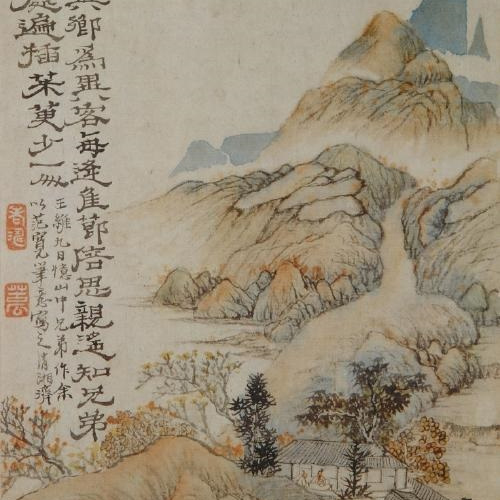 異鄉為異客每逢佳節倍思親遙知兄弟
處遍插茱萸少一人
王維九日憶山中兄弟作余
以范寬筆意寫之清湘濟